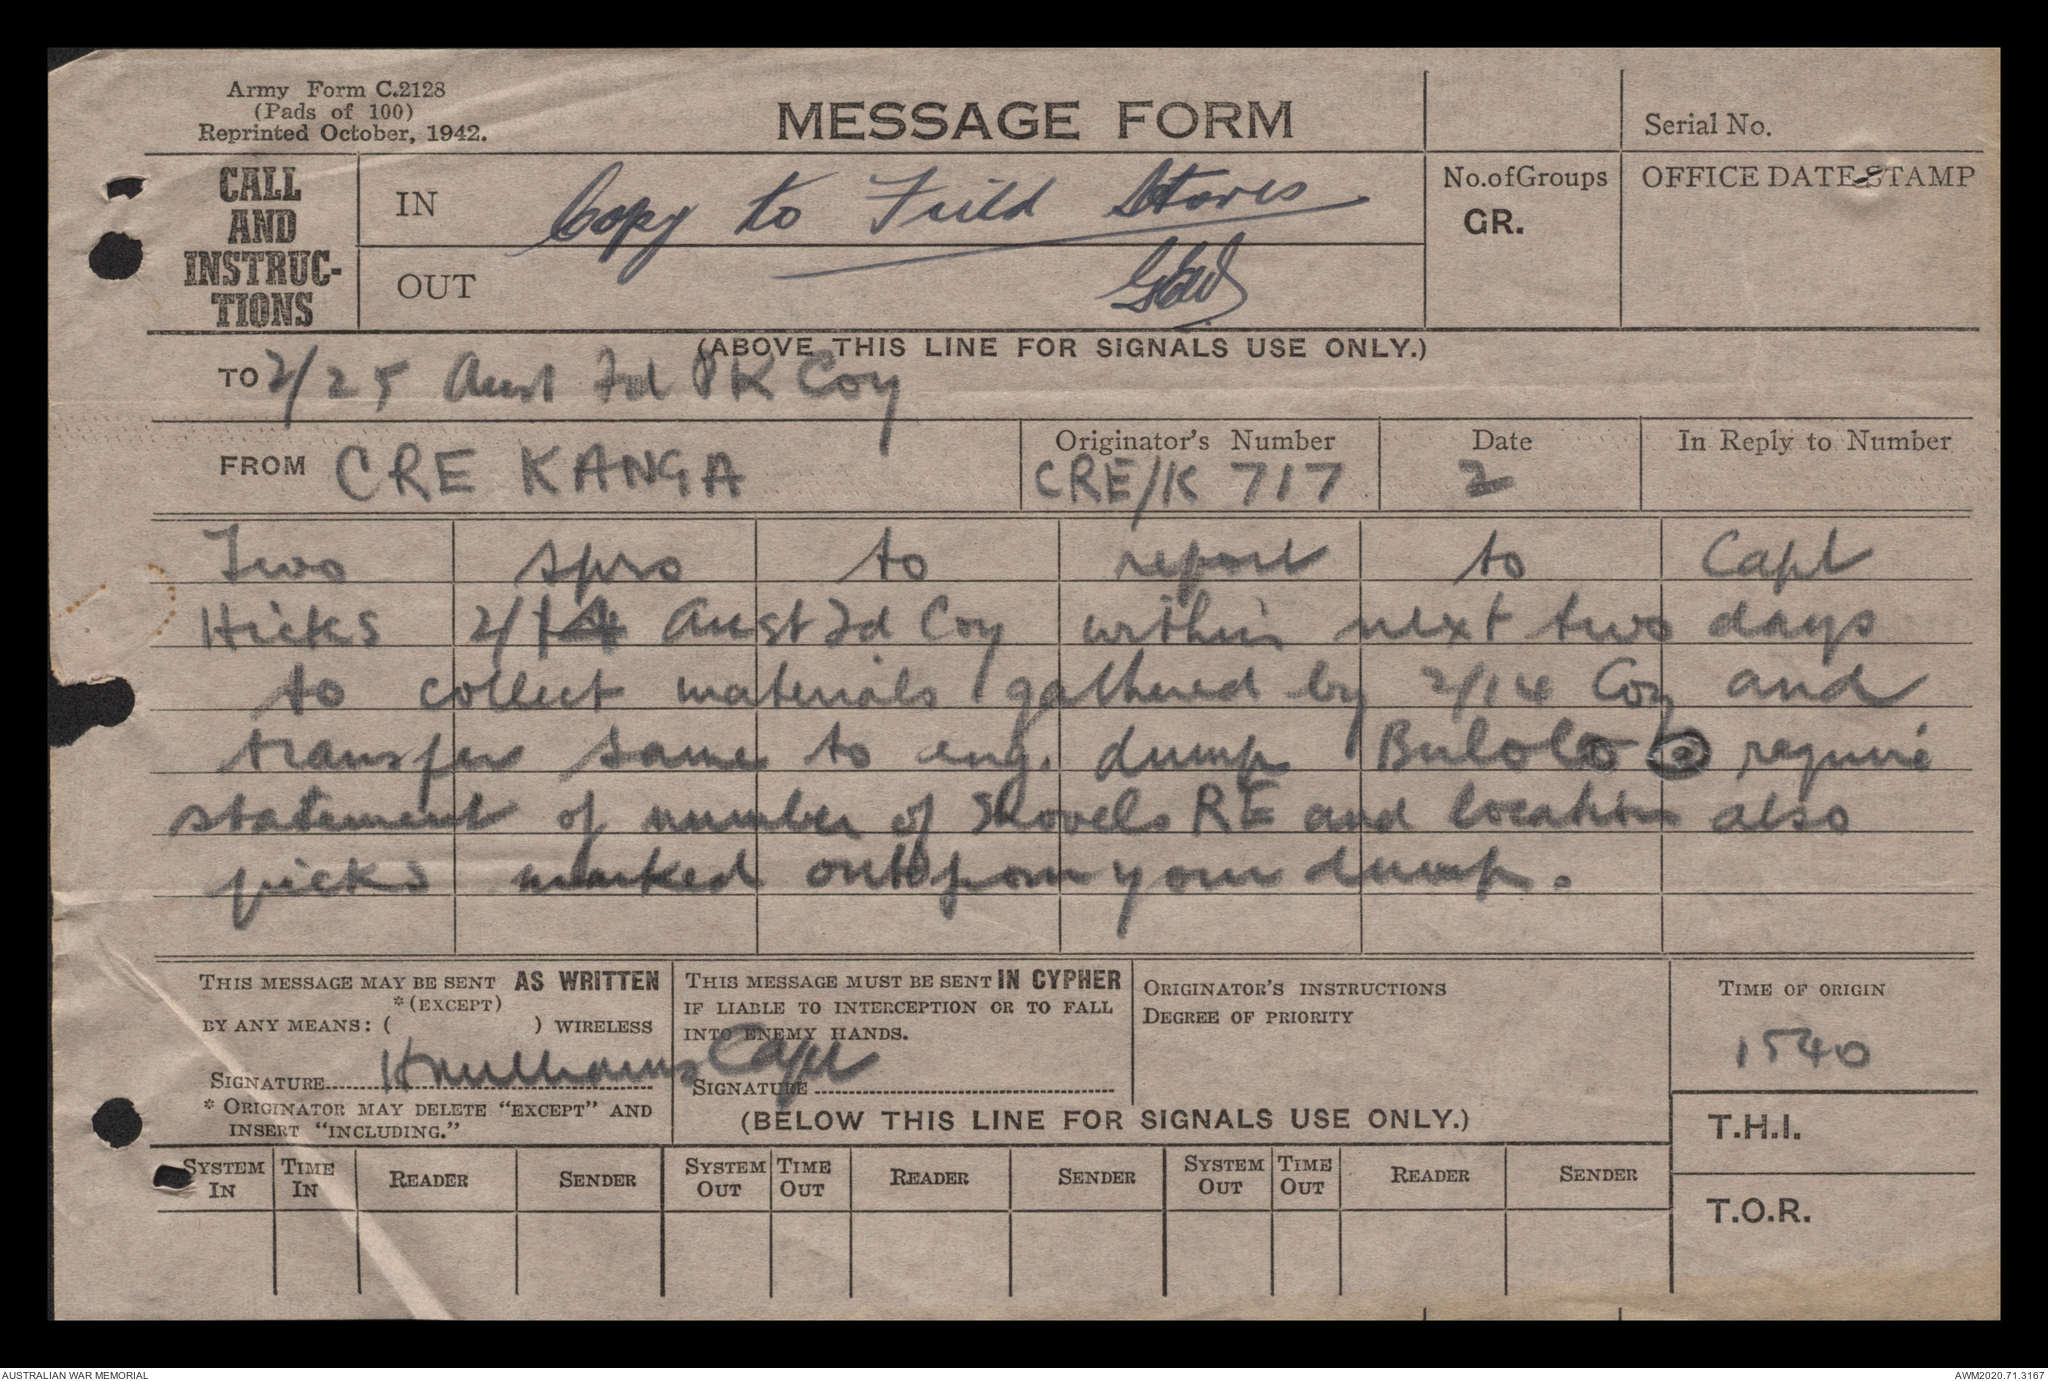 Army Form C.2128
(Pads of 100)
Reprinted October, 1942.
MESSAGE FORM
Serial No.
CALL
AND
INSTRUC-
TIONS
IN
Copy to Feild Stores
OUT
No. of Groups
GR.
OFFICE DATE STAMP
(ABOVE THIS LINE FOR SIGNALS USE ONLY.)
TO 2/25 Aust Fd PK Coy
FROM CRE KANGA
Originator's Number
CRE/K 717
Date
2
In Reply to Number
Two sprs to report to Capt
Hicks 2/14 Aust Fd Coy within next two days
to collect materials gathered by 2/14 Coy and
transfer same to eng. dump Bulolo require
statement of number of Shovels RE and location also
picks marked out from your dump.
THIS MESSAGE MAY BE SENT AS WRITTEN
*(EXCEPT)
BY ANY MEANS: ( ) WIRELESS
SIGNATURE
* ORIGINATOR MAY DELETE "EXCEPT" AND
INSERT "INCLUDING."
THIS MESSAGE MUST BE SENT IN CYPHER
IF LIABLE TO INTERCEPTION OR TO FALL
INTO ENEMY HANDS.
Capt
SIGNATURE
ORIGINATOR'S INSTRUCTIONS
DEGREE OF PRIORITY
TIME OF ORIGIN
1540
(BELOW THIS LINE FOR SIGNALS USE ONLY.)
T.H.I.
SYSTEM IN TIME IN READER SENDER SYSTEM OUT TIME OUT READER SENDER SYSTEM OUT TIME OUT READER SENDER
T.O.R.
AUSTRALIAN WAR MEMORIAL
AWM2020.71.3167